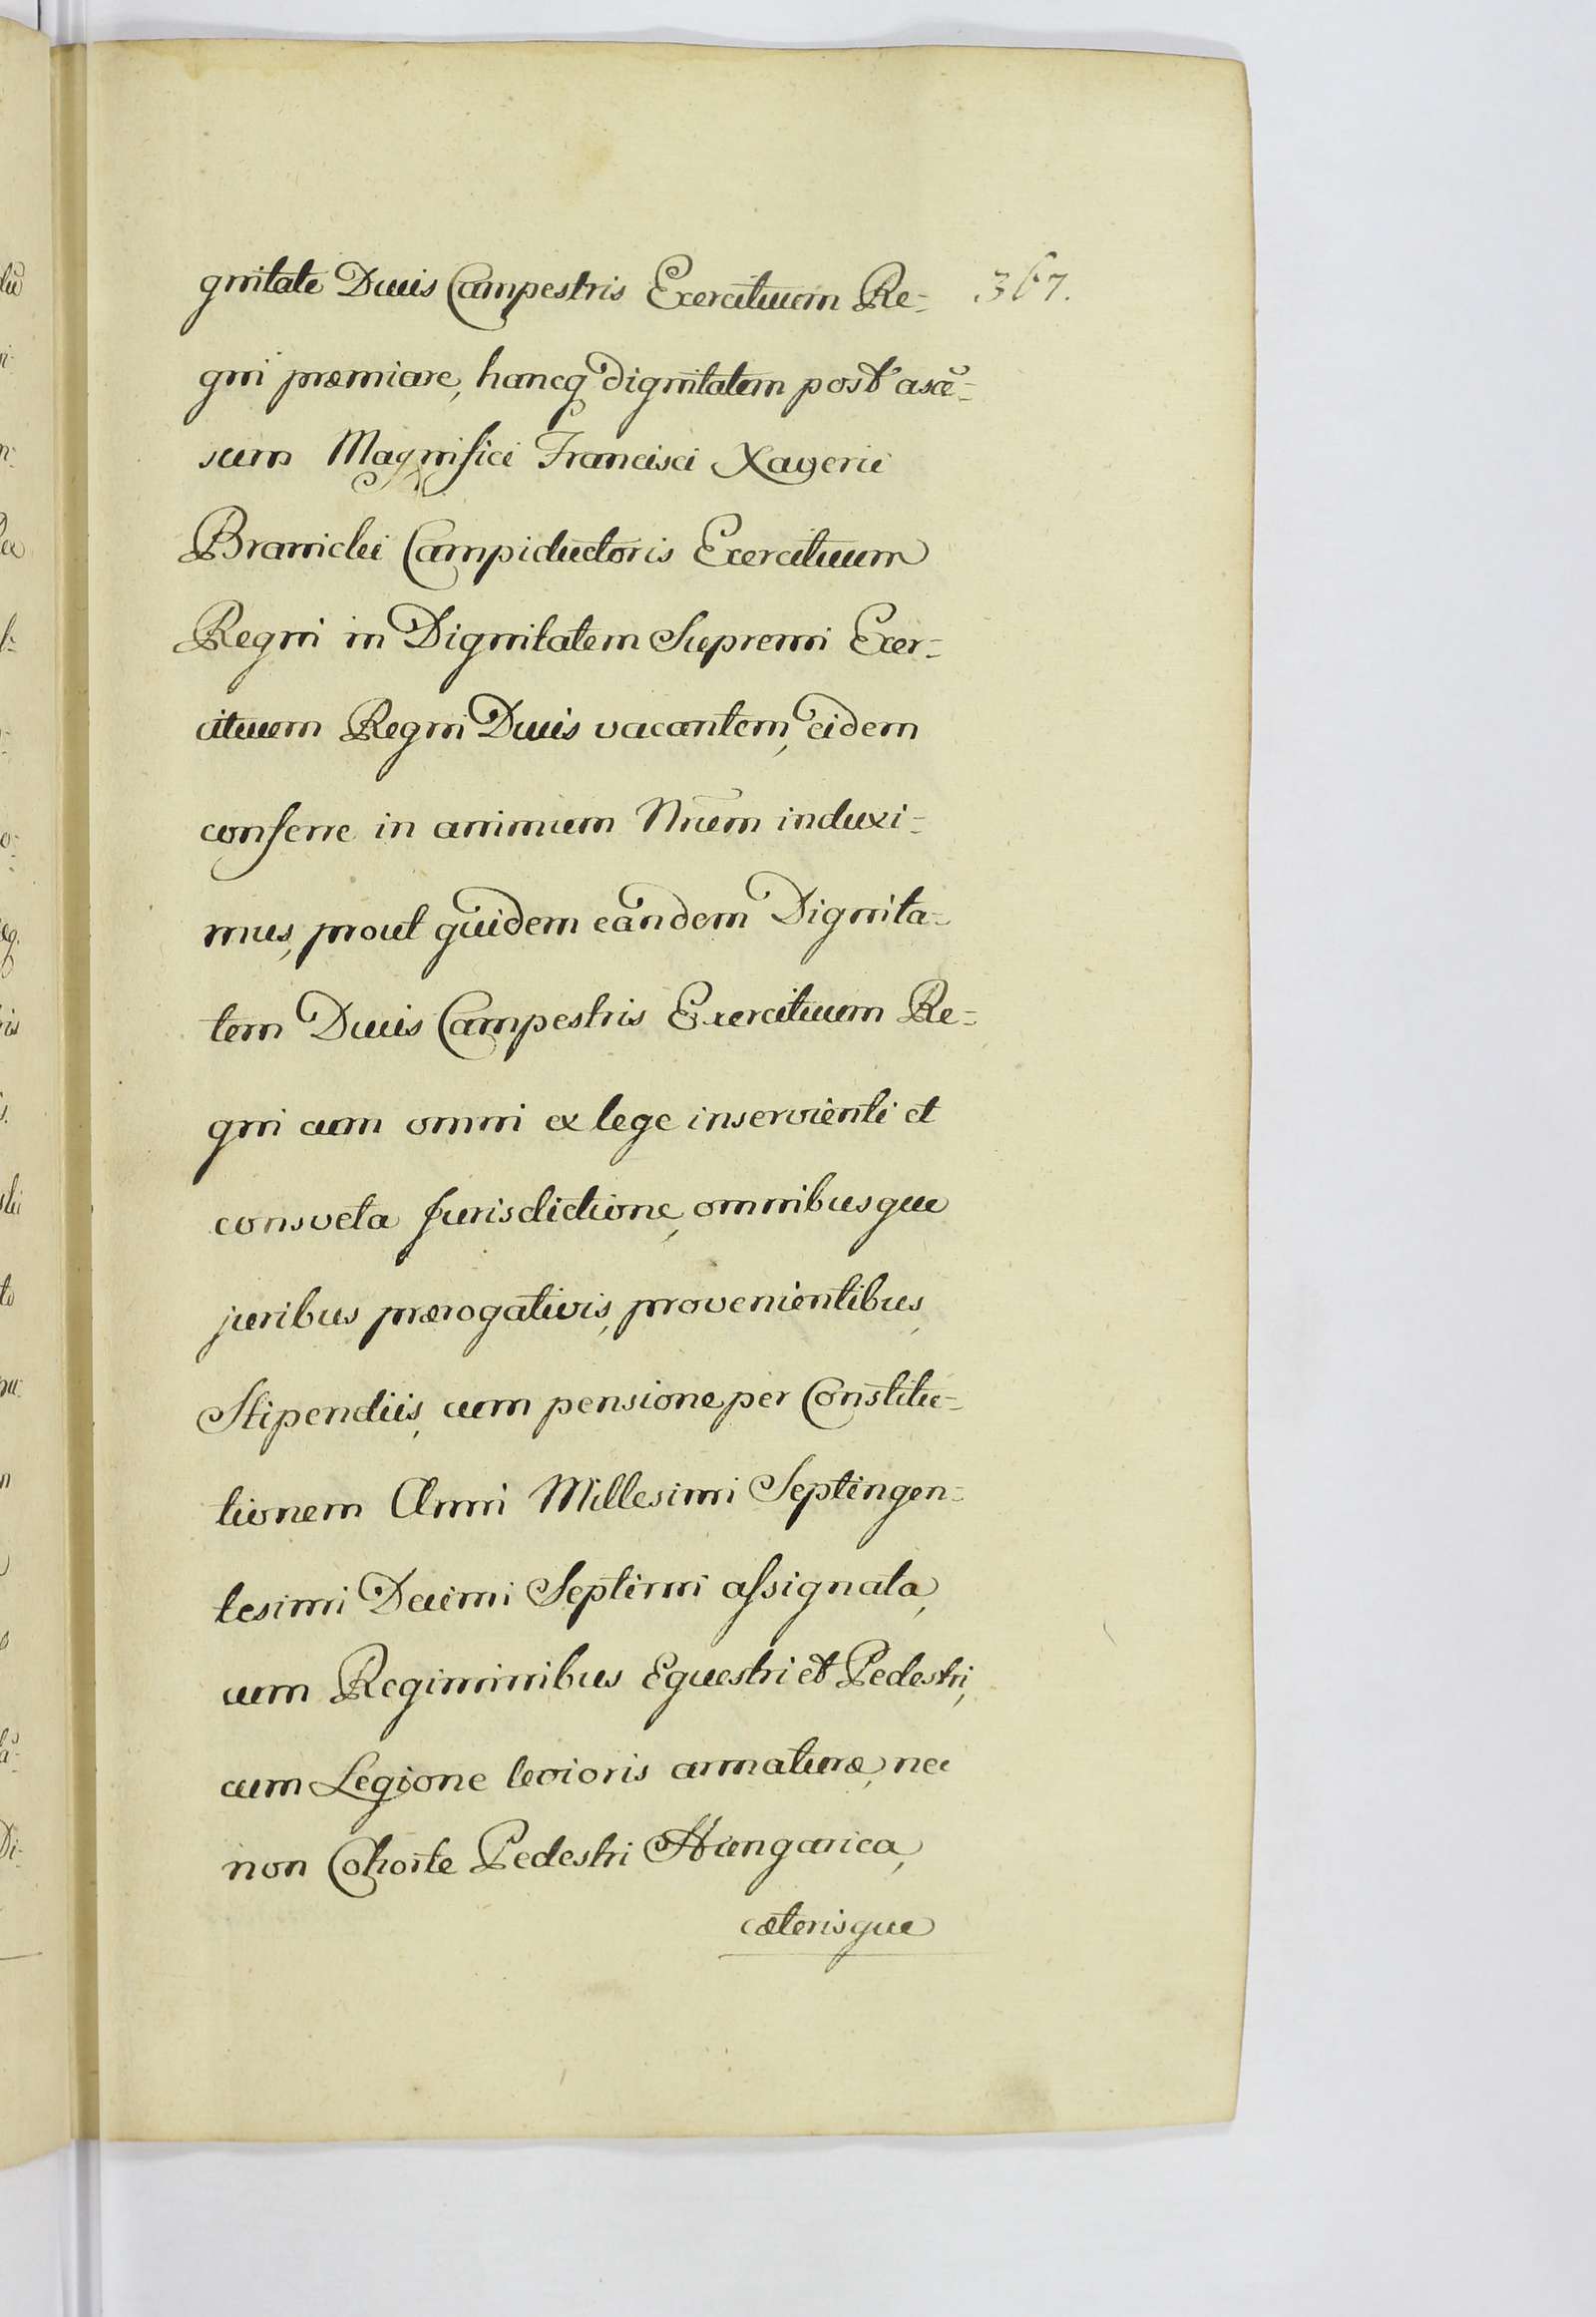 gnitate Ducis Campestris Exercituum Re- 367.
gni præmiare, hancq dignitatem post ascē-
sum Magnifici Francisci Xaverii
Branicki Campiductoris Exercituum
Regni in Dignitatem Supremi Exer-
cituum Regni Ducis vacantem, eidem
conferre in animum Nr̄um induxi-
mus, prout quidem eandem Dignita-
tem Ducis Campestris Exercituum Re-
gni cum omni ex lege inservienti et
consveta Jurisdictione, omnibusque
juribus prærogativis, provenientibus,
Stipendiis, cum pensione per Constitu-
tionem Anni Millesimi Septingen-
tesimi Decimi Septimi assignata,
cum Regiminibus Equestri et Pedestri,
cum Legione levioris armaturæ, nec
non Cohorte Pedestri Hungarica,
cæterisque